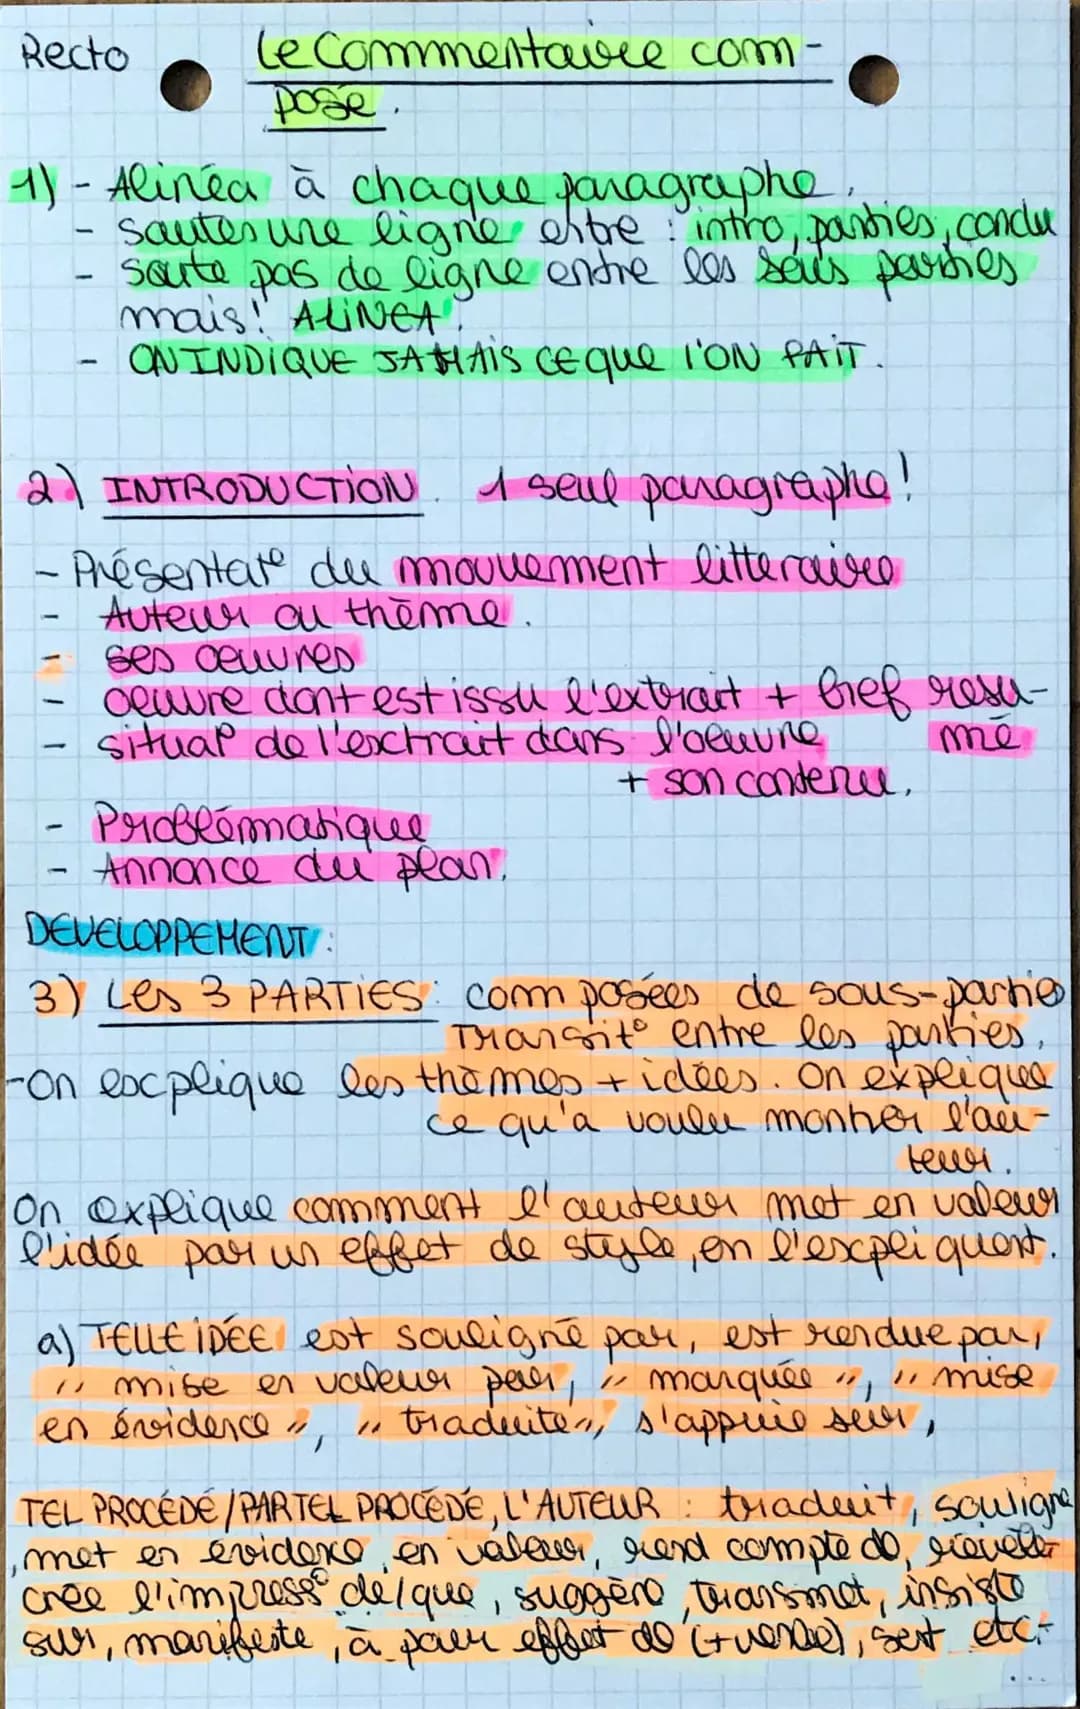 Recto Le Commentaire com-
posé.
1) - Alinéa à chaque paragraphe.
- sautes une ligne entre : intro, parties, conclu
- saute pas de ligne entre les sous parties
mais! ALINEA!
- ON INDIQUE JAMAIS CE que l'ON FAIT.
2) INTRODUCTION. 1 seul paragraphe!
- Présentat° du mouvement litteraire
- Auteur ou thème.
- ses oeuvres
- oeuvre dont est issu l'extrait + bref resu-
- situat° de l'exctrait dans l'oeuvre mé
+ son contenu.
- Problématique
- Annonce du plan.
DEVELOPPEMENT :
3) Les 3 PARTIES : composées de sous-parties
Transit° entre les parties.
-On excplique les thèmes + idées. On explique
ce qu'a voulu montrer l'au-
teur.
On explique comment l'auteur met en valeur
l'idée par un effet de style, en l'excpliquant.
a) TELLE IDÉE est souligné par, est rendue par,
" mise en valeur par, " marquée ", " mise
en évidence ", " traduite ", s'appuie sur,
TEL PROCÉDÉ/PAR TEL PROCÉDÉ, L'AUTEUR : traduit, souligne
, met en evidence, en valeur, rend compte de, révèle
crée l'impress° de/que, suggère, transmet, insiste
sur, manifeste, à pour effet de (+verbe), sert etc.
...